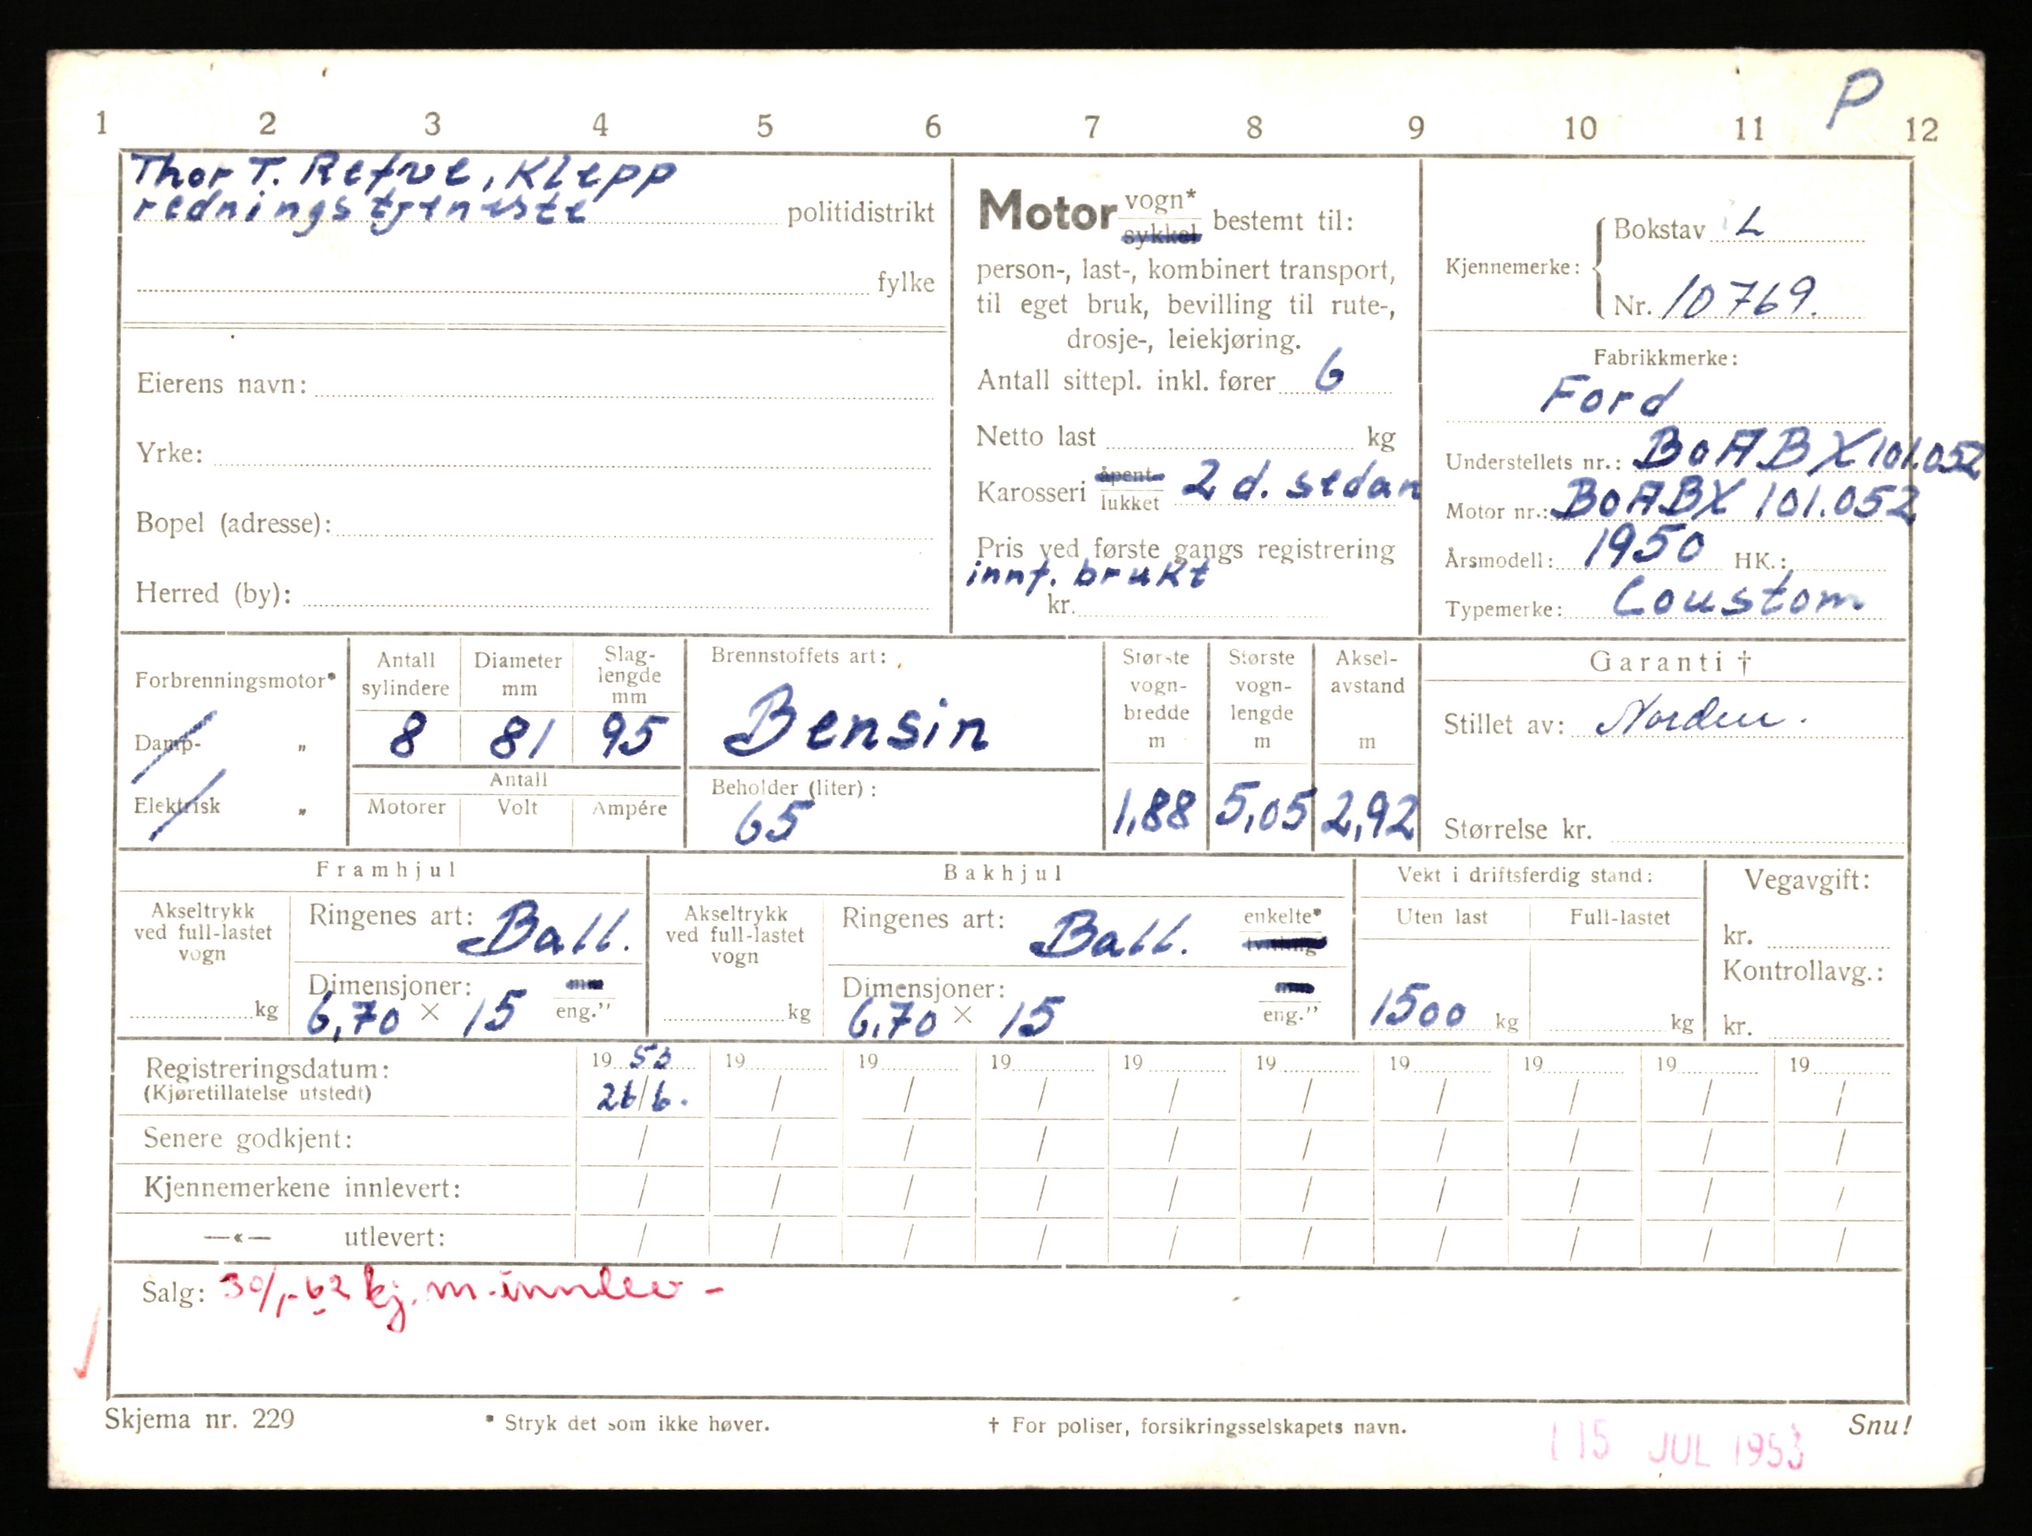 P
1 2 3 4 5 6 7 8 9 10 11 12
Thor T. Refve, Klepp
rednings tjeneste politidistrikt
fylke
Eierens navn:
Yrke:
Bopel (adresse):
Herred (by):
Motor vogn* sykkel bestemt til:
person-, last-, kombinert transport,
til eget bruk, bevilling til rute-,
drosje-, leiekjøring.
Antall sittepl. inkl. fører 6
Netto last kg
Karosseri åpent lukket 2 d. sedan
Pris ved første gangs registrering
innf. brukt
kr.
Kjennemerke: Bokstav L
Nr. 10769.
Fabrikkmerke:
Ford
Understellets nr.: BoABX101.052
Motor nr.: BoABX 101.052
Årsmodell: 1950 HK.:
Typemerke: Coustom
Forbrenningsmotor*
Damp- „
Elektrisk „
Antall sylindere
8
Diameter mm
81
Slag-
lengde
mm
95
Antall
Motorer Volt Ampére
Brennstoffets art:
Bensin
Beholder (liter):
65
Største
vogn-
bredde
m
1,88
Største
vogn-
lengde
m
5,05
Aksel-
avstand
m
2,92
Garanti †
Stillet av: Norden.
Størrelse kr.
Framhjul
Akseltrykk
ved full-lastet
vogn
kg
Ringenes art: Ball.
Dimensjoner: mm
6,70 × 15 eng.”
Bakhjul
Akseltrykk
ved full-lastet
vogn
kg
Ringenes art: Ball. enkelte*
tvilling
Dimensjoner: mm
6.70 × 15 eng.”
Vekt i driftsferdig stand:
Uten last Full-lastet
1500 kg kg
Vegavgift:
kr.
Kontrollavg.:
kr.
Registreringsdatum: 19 53 19 19 19 19 19 19 19 19 19
(Kjøretillatelse utstedt) 26/6. / / / / / / / / /
Senere godkjent: / / / / / / / / / /
Kjennemerkene innlevert: / / / / / / / / / /
—«— utlevert: / / / / / / / / / /
Salg: 30/1-62 kj.m. innlev -
Skjema nr. 229 * Stryk det som ikke høver. † For poliser, forsikringsselskapets navn. Snu!
15 JUL 1953